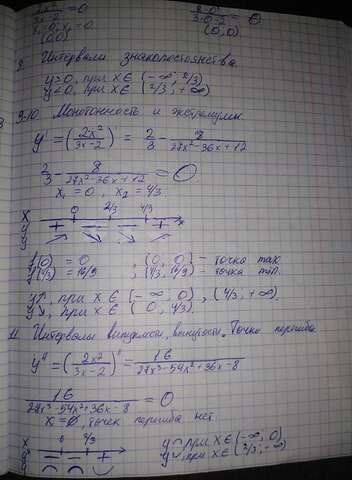 2x²/(3x-2) = 0
x₁=0, x₂=0
(0,0)
= 0
(0,0)
8. Интервалы знакопостоянства.
y>0, при x ∈ (-∞; 2/3)
y<0, при x ∈ (2/3; +∞)
9-10 Монотонность и экстремумы.
y' = (2x²/(3x-2))' = 2/3 - 8/(27x²-36x+12)
2/3 - 8/(27x²-36x+12) = 0
x₁ = 0, x₂ = 4/3
x 0 2/3 4/3 x
y' + - - +
y ↗ ↘ ↘ ↗
f(0) = 0 ; (0, 0) - точка max
f(4/3) = 16/9 ; (4/3, 16/9) - точка min.
y↑, при x ∈ (-∞, 0), (4/3; +∞).
y↓, при x ∈ (0, 4/3).
11 Интервалы выпуклости, вогнутости. Точки перегиба
y'' = (2x²/(3x-2))'' = 16/(27x³-54x²+36x-8)
16/(27x³-54x²+36x-8) = 0
точек перегиба нет.
x 0 2/3
y'' - - +
y ⌢ ⌢ ⌣
y ⌢ при x ∈ (-∞; 0)
y ⌣ при x ∈ (2/3; +∞)